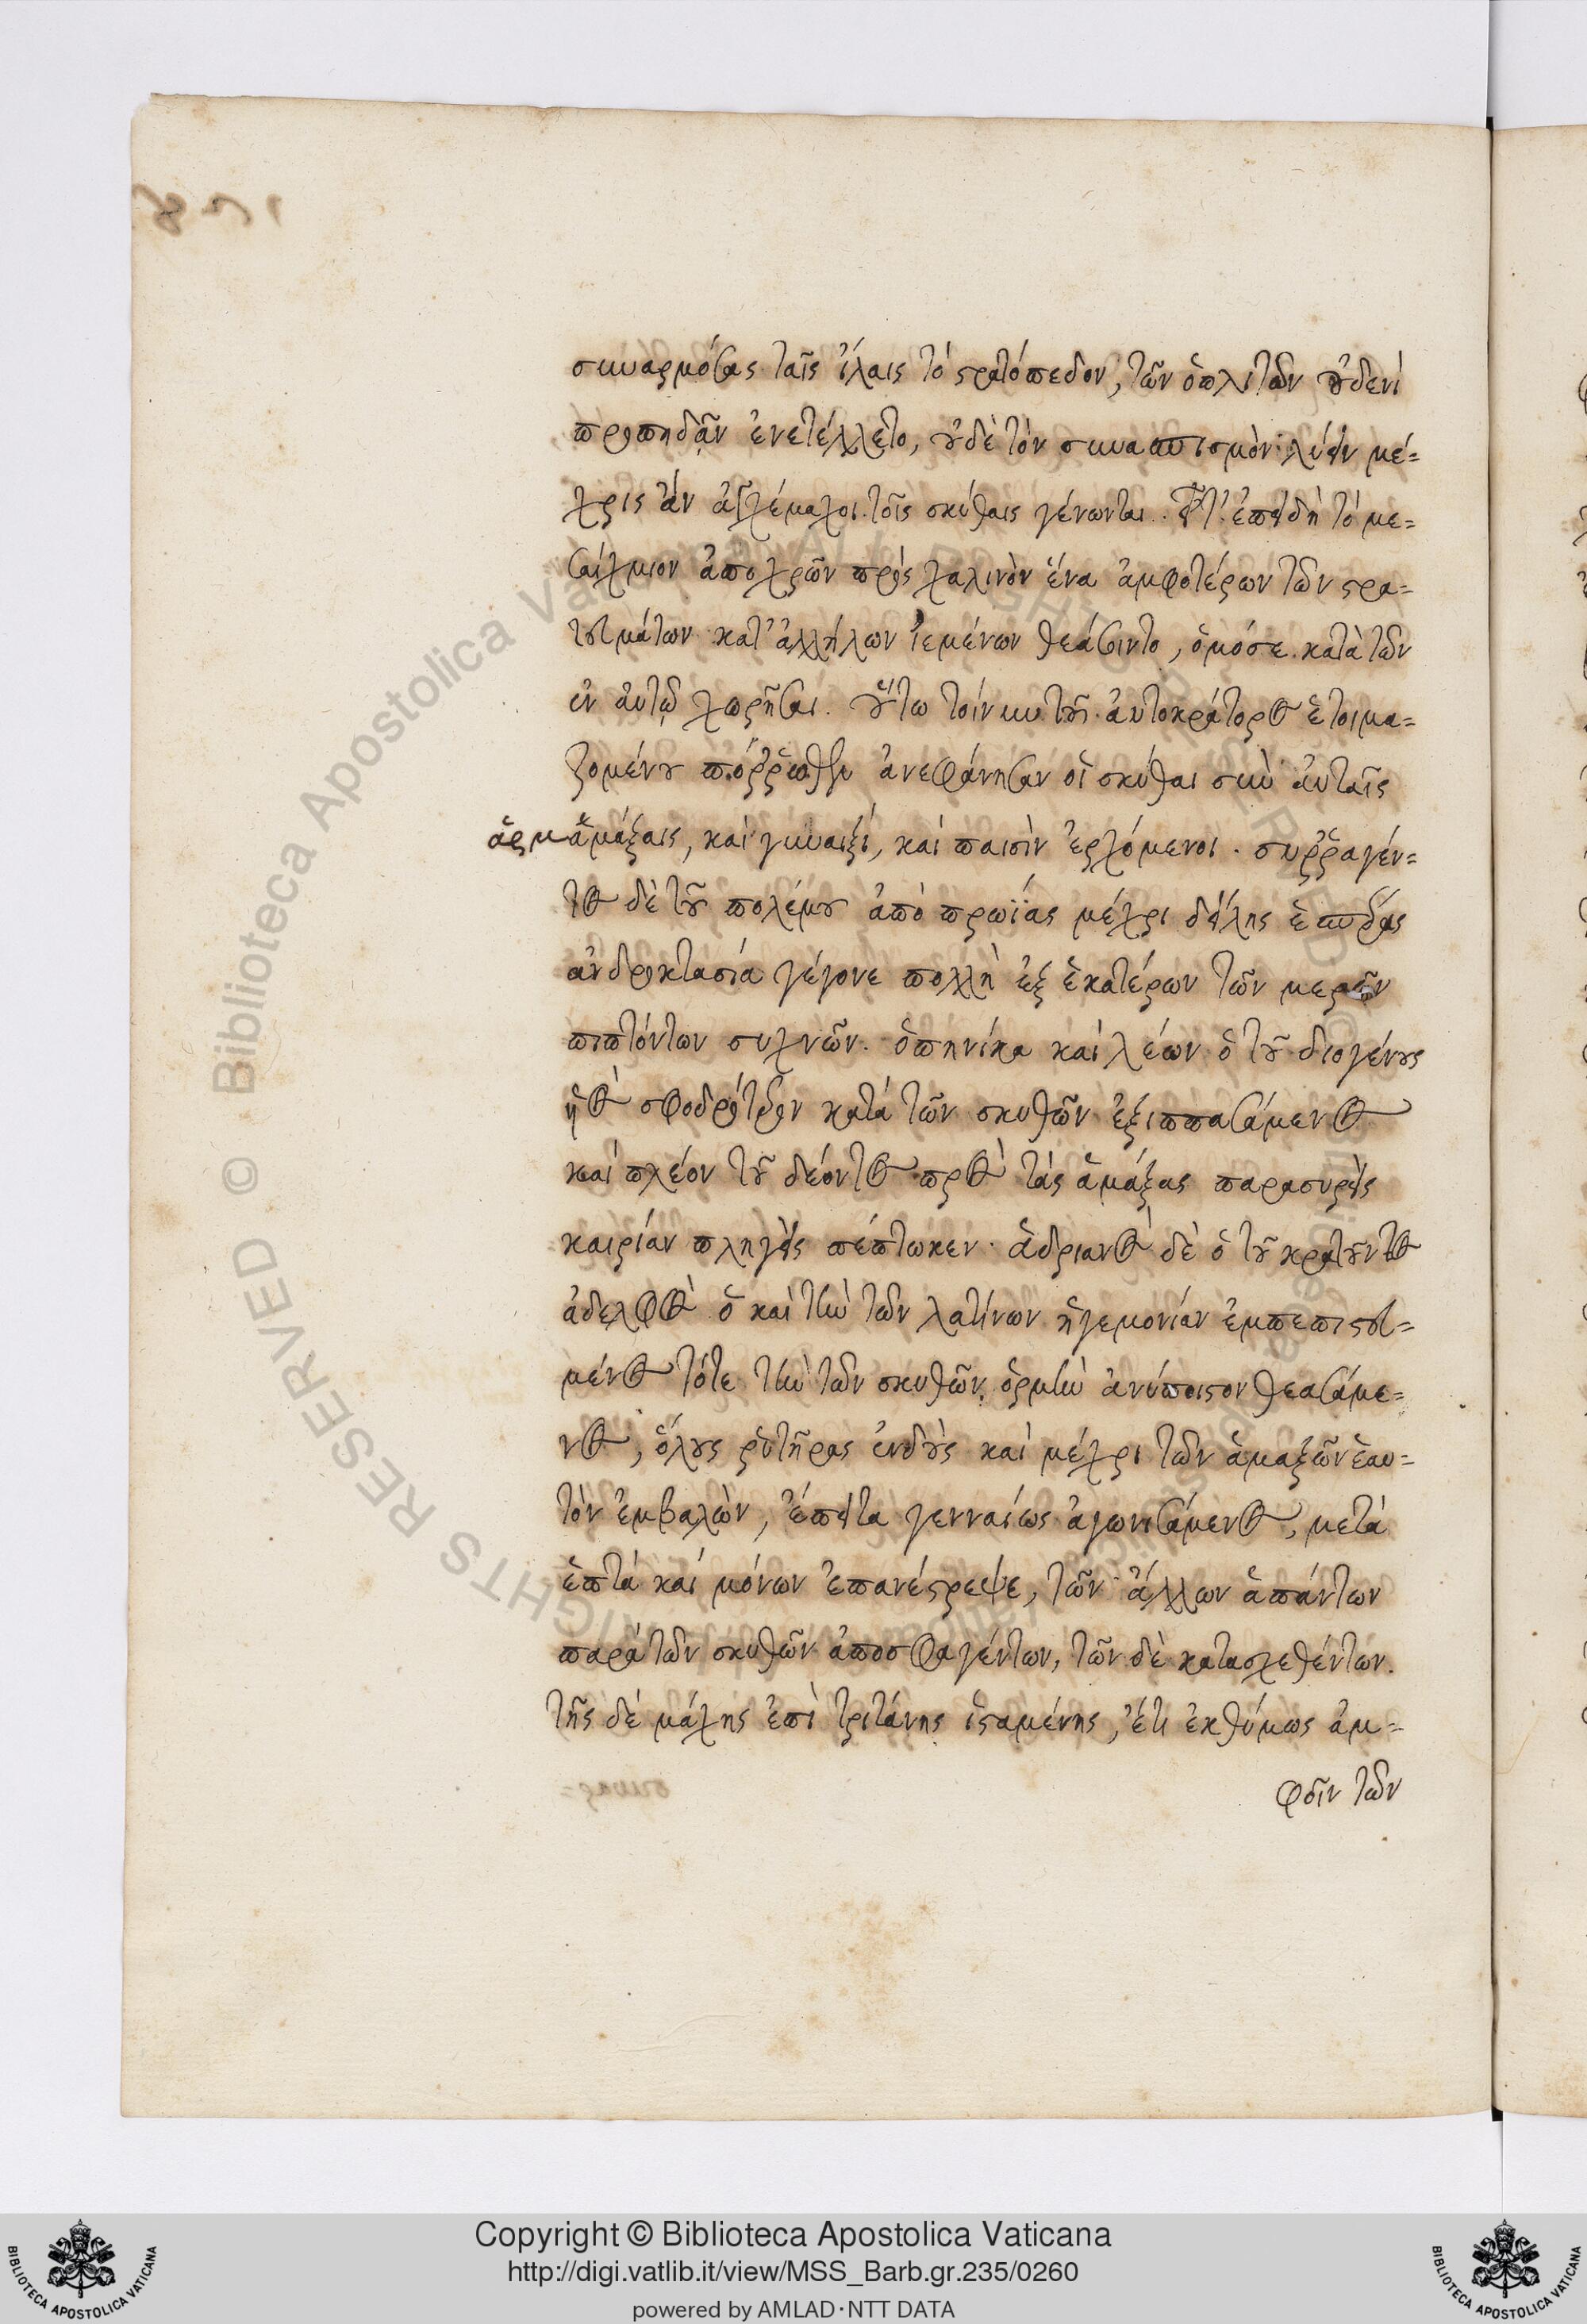 συναρμόσας ταῖς ἴλαις τὸ στρατόπεδον, τῶν ὁπλιτῶν οὐδενὶ
προπηδᾶν ἐνετέλλετο, οὐδὲ τὸν συνασπισμὸν λύειν μέ=
χρις ἂν ἀγχέμαχοι τοῖς σκύθαις γένωνται. ἐπειδὴ τὸ με=
σαίχμιον ἀποχρῶν πρὸς χαλινὸν ἕνα ἀμφοτέρων τῶν στρα=
τευμάτων κατ' ἀλλήλων ἱεμένων θεάσοιντο, ὁμόσε κατὰ τῶν
ἐν αὐτῷ χωρῆσαι. οὕτω τοίνυν τοῦ αὐτοκράτορος ἑτοιμα=
ζομένου πόρῤῥωθεν ἀνεφάνησαν οἱ σκύθαι σὺν αὐταῖς
ἁρμαμάξαις, καὶ γυναιξὶ, καὶ παισὶν ἐρχόμενοι. συῤῥαγέν=
τος δὲ τοῦ πολέμου ἀπὸ πρωΐας μέχρι δείλης ἑσπέρας
ἀνδροκτασία γέγονε πολλὴ ἐξ ἑκατέρων τῶν μερῶν
πιπτόντων συχνῶν. ὁπηνίκα καὶ λέων ὁ τοῦ διογένους
υἱὸς σφοδρότερον κατὰ τῶν σκυθῶν ἐξιππασάμενος
καὶ πλέον τοῦ δέοντος πρὸς τὰς ἁμάξας παρασυρεὶς
καιρίαν πληγεὶς πέπτωκεν. ἀδριανὸς δὲ ὁ τοῦ κρατοῦντος
ἀδελφὸς ὁ καὶ τὴν τῶν λατίνων ἡγεμονίαν ἐμπεπιστευ=
μένος τότε τὴν τῶν σκυθῶν ὁρμὴν ἀνύποιστον θεασάμε=
νος, ὅλους ῥυτῆρας ἐνδοὺς καὶ μέχρι τῶν ἁμαξῶν ἑαυ=
τὸν ἐμβαλὼν, ἔπειτα γενναίως ἀγωνισάμενος, μετὰ
ἑπτὰ καὶ μόνων ἐπανέστρεψε, τῶν ἄλλων ἁπάντων
παρὰ τῶν σκυθῶν ἀποσφαγέντων, τῶν δὲ κατασχεθέντων.
τῆς δὲ μάχης ἐπὶ τριτάνης ἱσταμένης, ἔτι ἐκθύμως ἀμ=
φοῖν τῶν
Copyright © Biblioteca Apostolica Vaticana
http://digi.vatlib.it/view/MSS_Barb.gr.235/0260
powered by AMLAD·NTT DATA